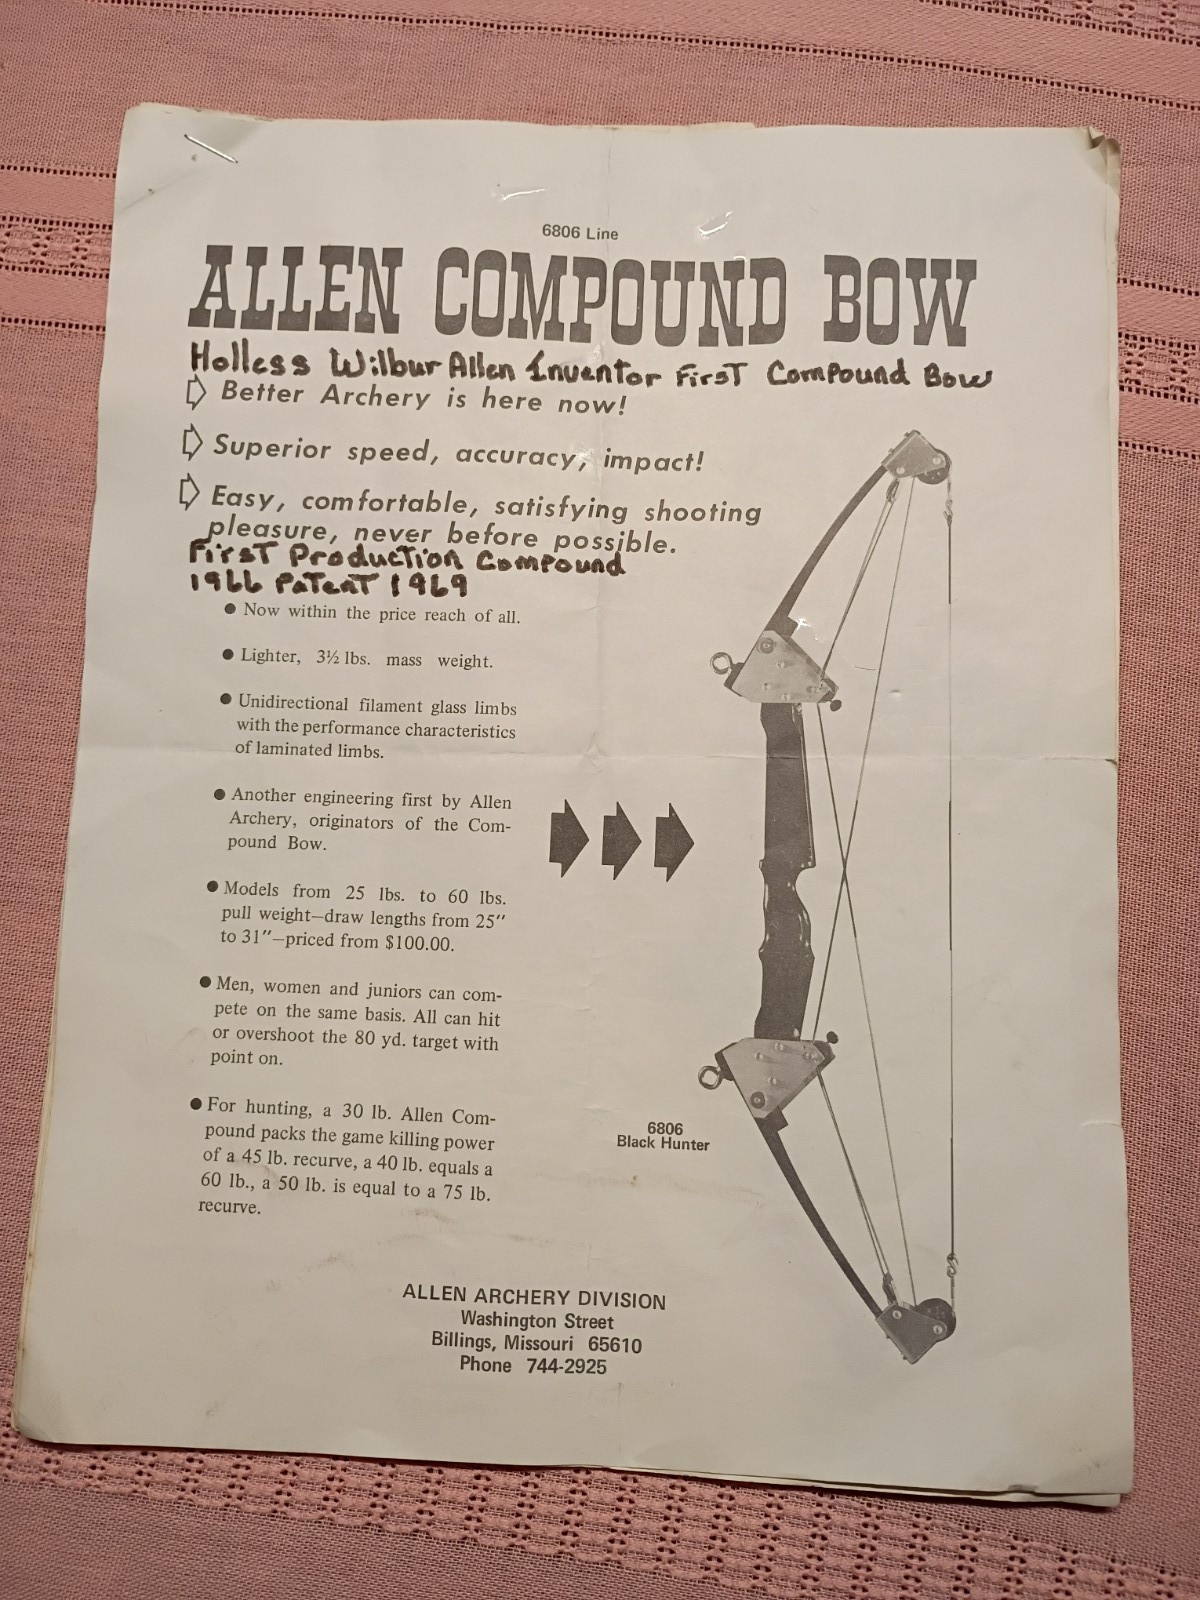 6806 Line
ALLEN COMPOUND BOW
Holless Wilbur Allen Inventor First Compound Bow
Better Archery is here now!
Superior speed, accuracy, impact!
Easy, comfortable, satisfying shooting
pleasure, never before possible.
First Production Compound
1966 Patent 1969
● Now within the price reach of all.
● Lighter, 3½ lbs. mass weight.
● Unidirectional filament glass limbs
with the performance characteristics
of laminated limbs.
● Another engineering first by Allen
Archery, originators of the Com-
pound Bow.
● Models from 25 lbs. to 60 lbs.
pull weight—draw lengths from 25"
to 31"—priced from $100.00.
● Men, women and juniors can com-
pete on the same basis. All can hit
or overshoot the 80 yd. target with
point on.
● For hunting, a 30 lb. Allen Com-
pound packs the game killing power
of a 45 lb. recurve, a 40 lb. equals a
60 lb., a 50 lb. is equal to a 75 lb.
recurve.
6806
Black Hunter
ALLEN ARCHERY DIVISION
Washington Street
Billings, Missouri 65610
Phone 744-2925